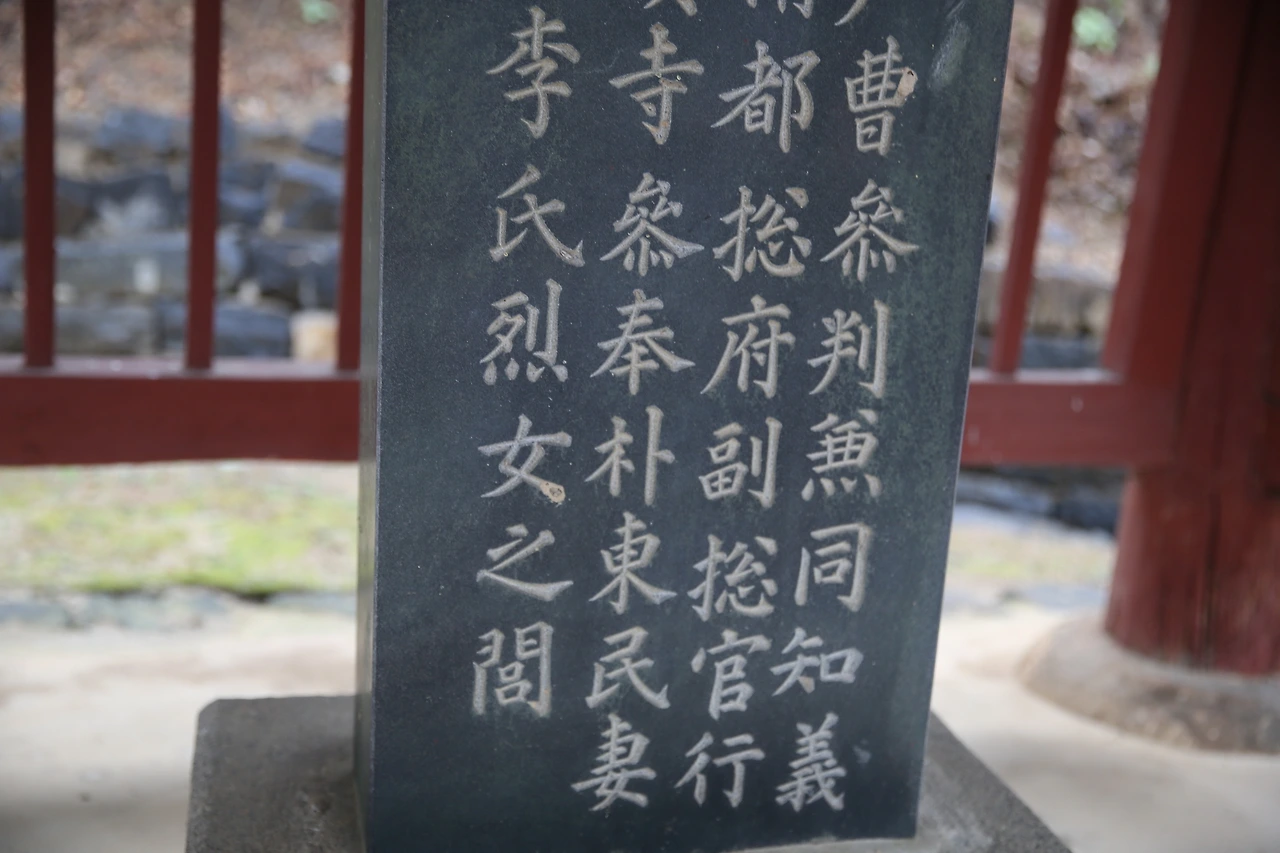 曹參判兼同知義
都総府副総官行
寺參奉朴東民妻
李氏烈女之閭